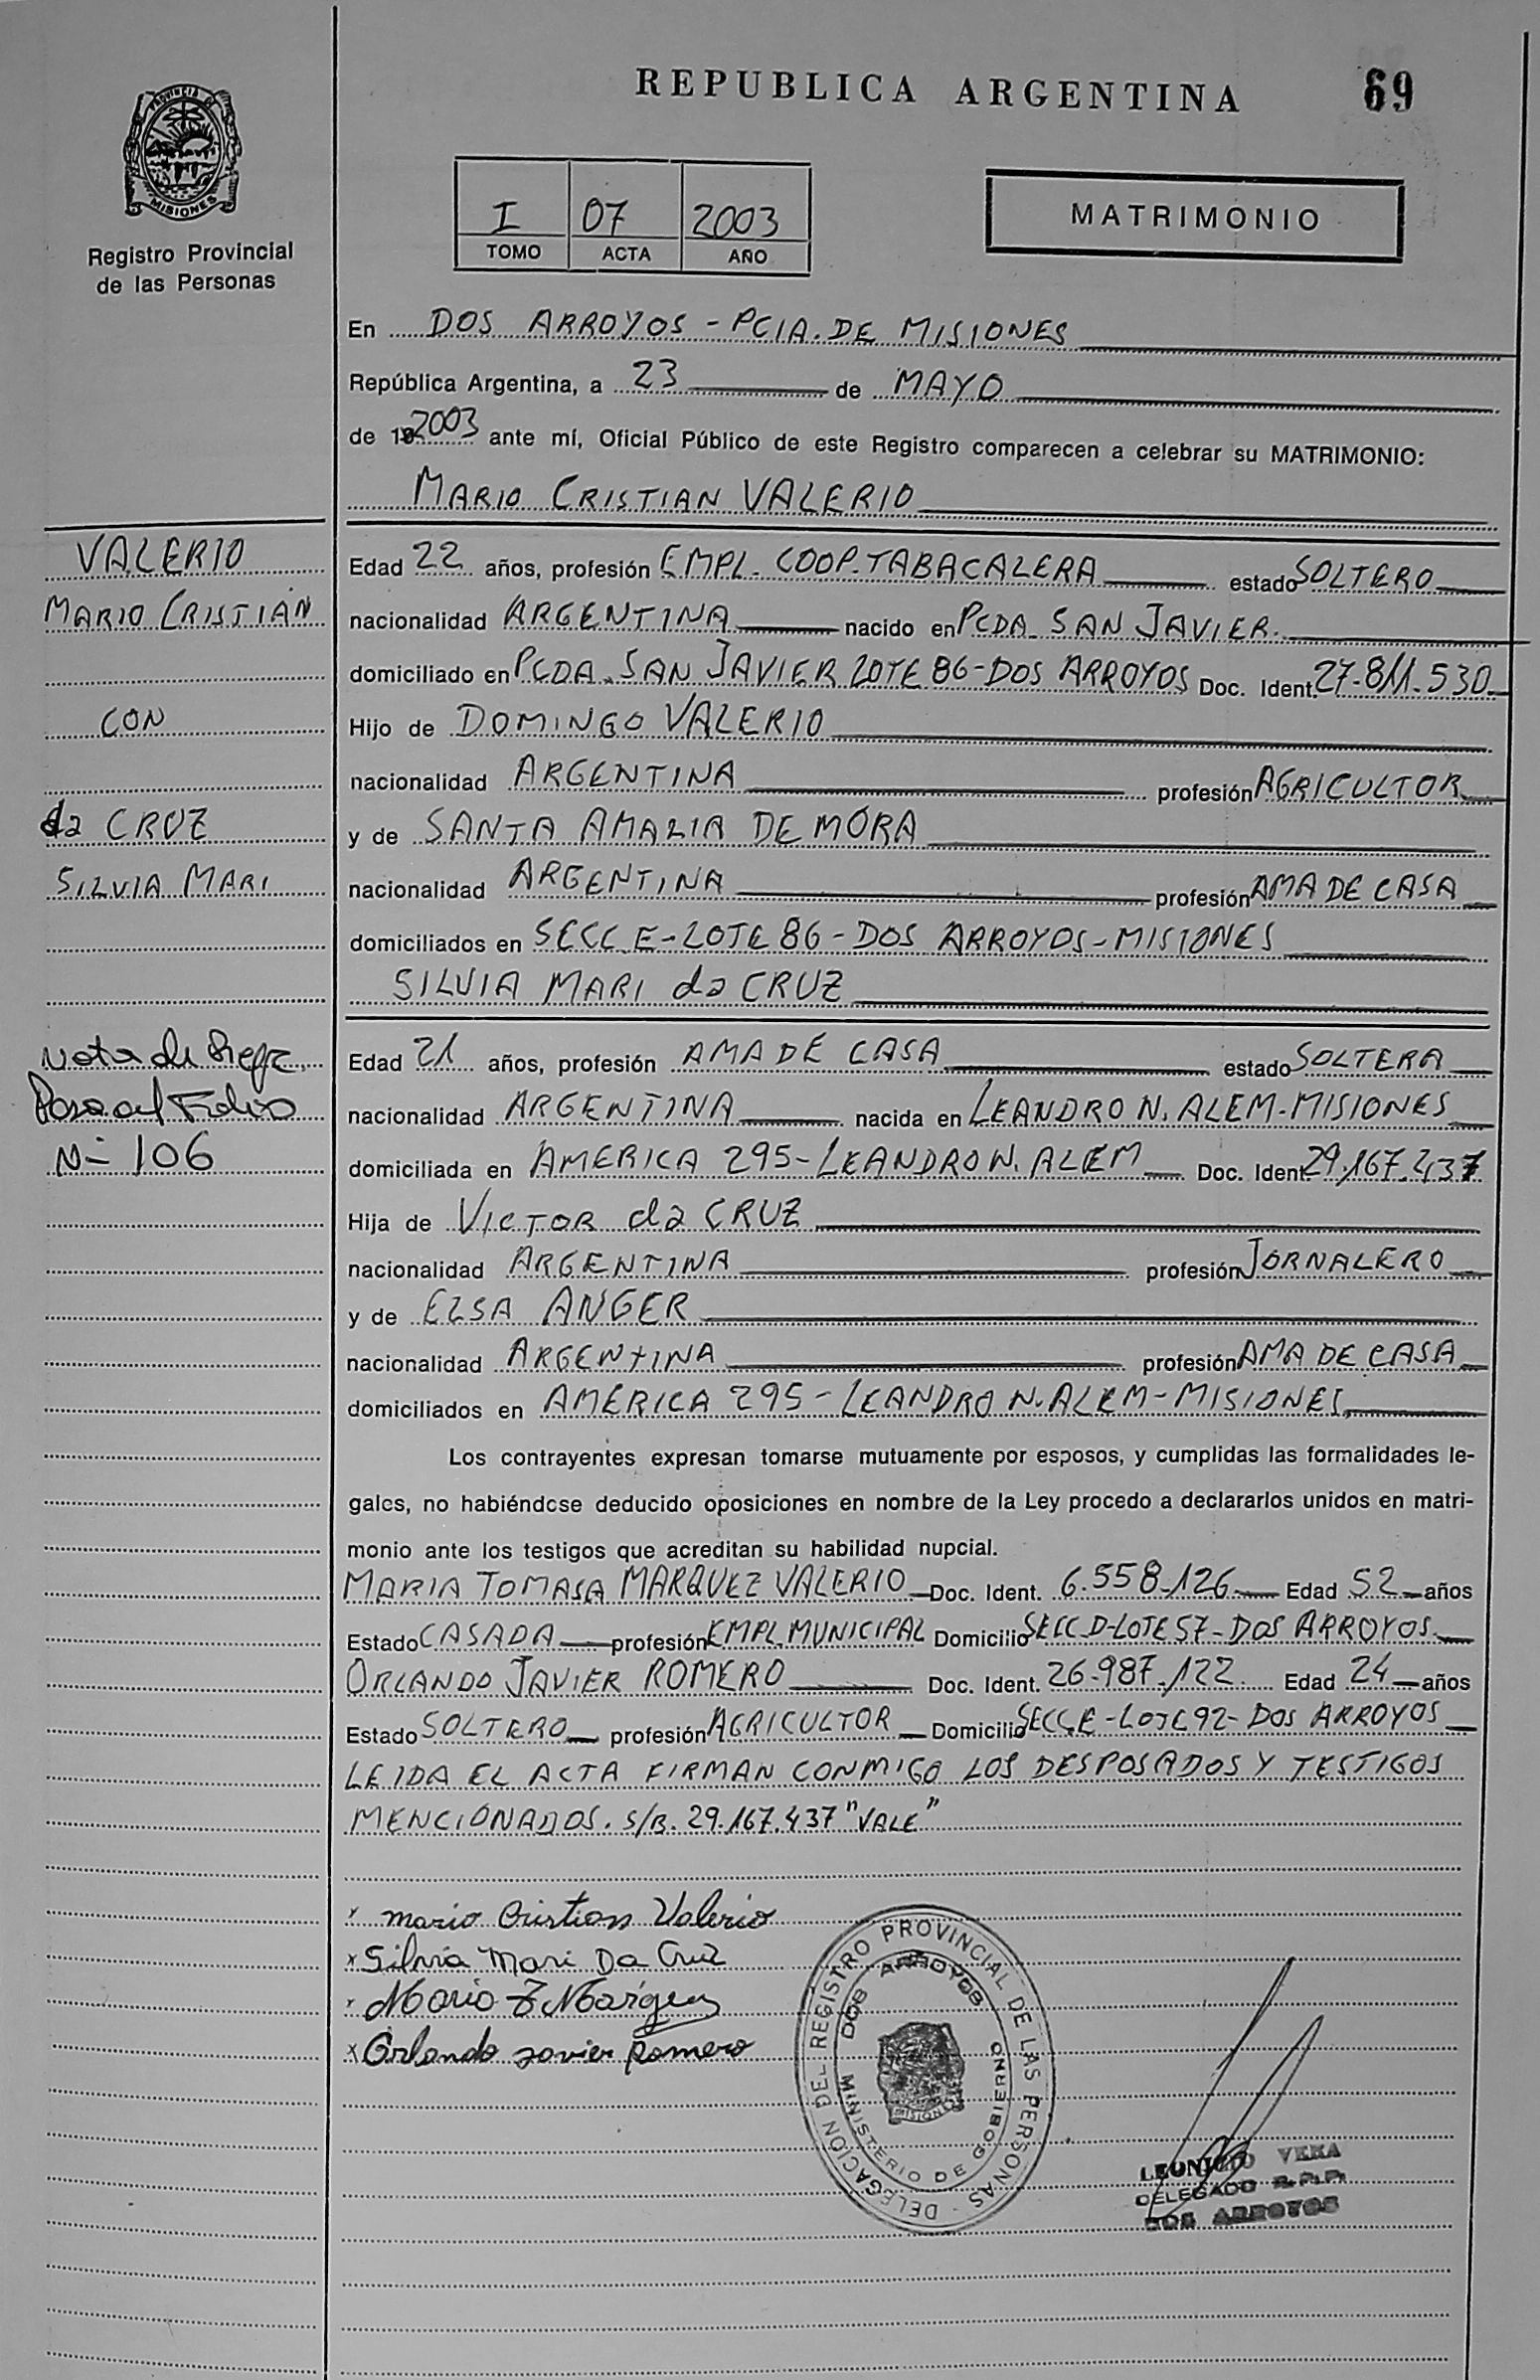 REPUBLICA ARGENTINA
69
PROVINCIA DE
MISIONES
Registro Provincial
de las Personas
I 07 2003
TOMO ACTA AÑO
MATRIMONIO
En DOS ARROYOS - PCIA. DE MISIONES
República Argentina, a 23 de MAYO
de 19 2003 ante mí, Oficial Público de este Registro comparecen a celebrar su MATRIMONIO:
MARIO CRISTIAN VALERIO
VALERIO
MARIO CRISTIAN
CON
da CRUZ
SILVIA MARI
Nota de Refz.
Pasa al Folio
N- 106
Edad 22 años, profesión EMPL. COOP. TABACALERA estado SOLTERO
nacionalidad ARGENTINA nacido en PCDA. SAN JAVIER.
domiciliado en PCDA. SAN JAVIER LOTE 86-DOS ARROYOS Doc. Ident. 27.811.530
Hijo de DOMINGO VALERIO
nacionalidad ARGENTINA profesión AGRICULTOR
y de SANTA AMALIA DE MORA
nacionalidad ARGENTINA profesión AMA DE CASA
domiciliados en SECC E-LOTE 86-DOS ARROYOS-MISIONES
SILVIA MARI da CRUZ
Edad 21 años, profesión AMA DE CASA estado SOLTERA
nacionalidad ARGENTINA nacida en LEANDRO N. ALEM-MISIONES
domiciliada en AMERICA 295-LEANDRO N. ALEM Doc. Ident. 29.167.437
Hija de VICTOR da CRUZ
nacionalidad ARGENTINA profesión JORNALERO
y de ELSA ANGER
nacionalidad ARGENTINA profesión AMA DE CASA
domiciliados en AMERICA 295-LEANDRO N. ALEM-MISIONES
Los contrayentes expresan tomarse mutuamente por esposos, y cumplidas las formalidades le-
gales, no habiéndose deducido oposiciones en nombre de la Ley procedo a declararlos unidos en matri-
monio ante los testigos que acreditan su habilidad nupcial.
MARIA TOMASA MARQUEZ VALERIO Doc. Ident. 6.558.126 Edad 52 años
Estado CASADA profesión EMPL. MUNICIPAL Domicilio SECC D-LOTE 57-DOS ARROYOS
ORLANDO JAVIER ROMERO Doc. Ident. 26.987.122 Edad 24 años
Estado SOLTERO profesión AGRICULTOR Domicilio SECC E-LOTE 92-DOS ARROYOS
LEIDA EL ACTA FIRMAN CONMIGO LOS DESPOSADOS Y TESTIGOS
MENCIONADOS. S/B. 29.167.437 "VALE"
x mario Cristian Valerio
x Silvia Mari Da Cruz
x Maria T Marquez
x Orlando Javier Romero
DELEGACION DEL REGISTRO PROVINCIAL DE LAS PERSONAS
DOS ARROYOS
MINISTERIO DE GOBIERNO
MISIONES
VERA
DELEGADO R.P.P.
DOS ARROYOS